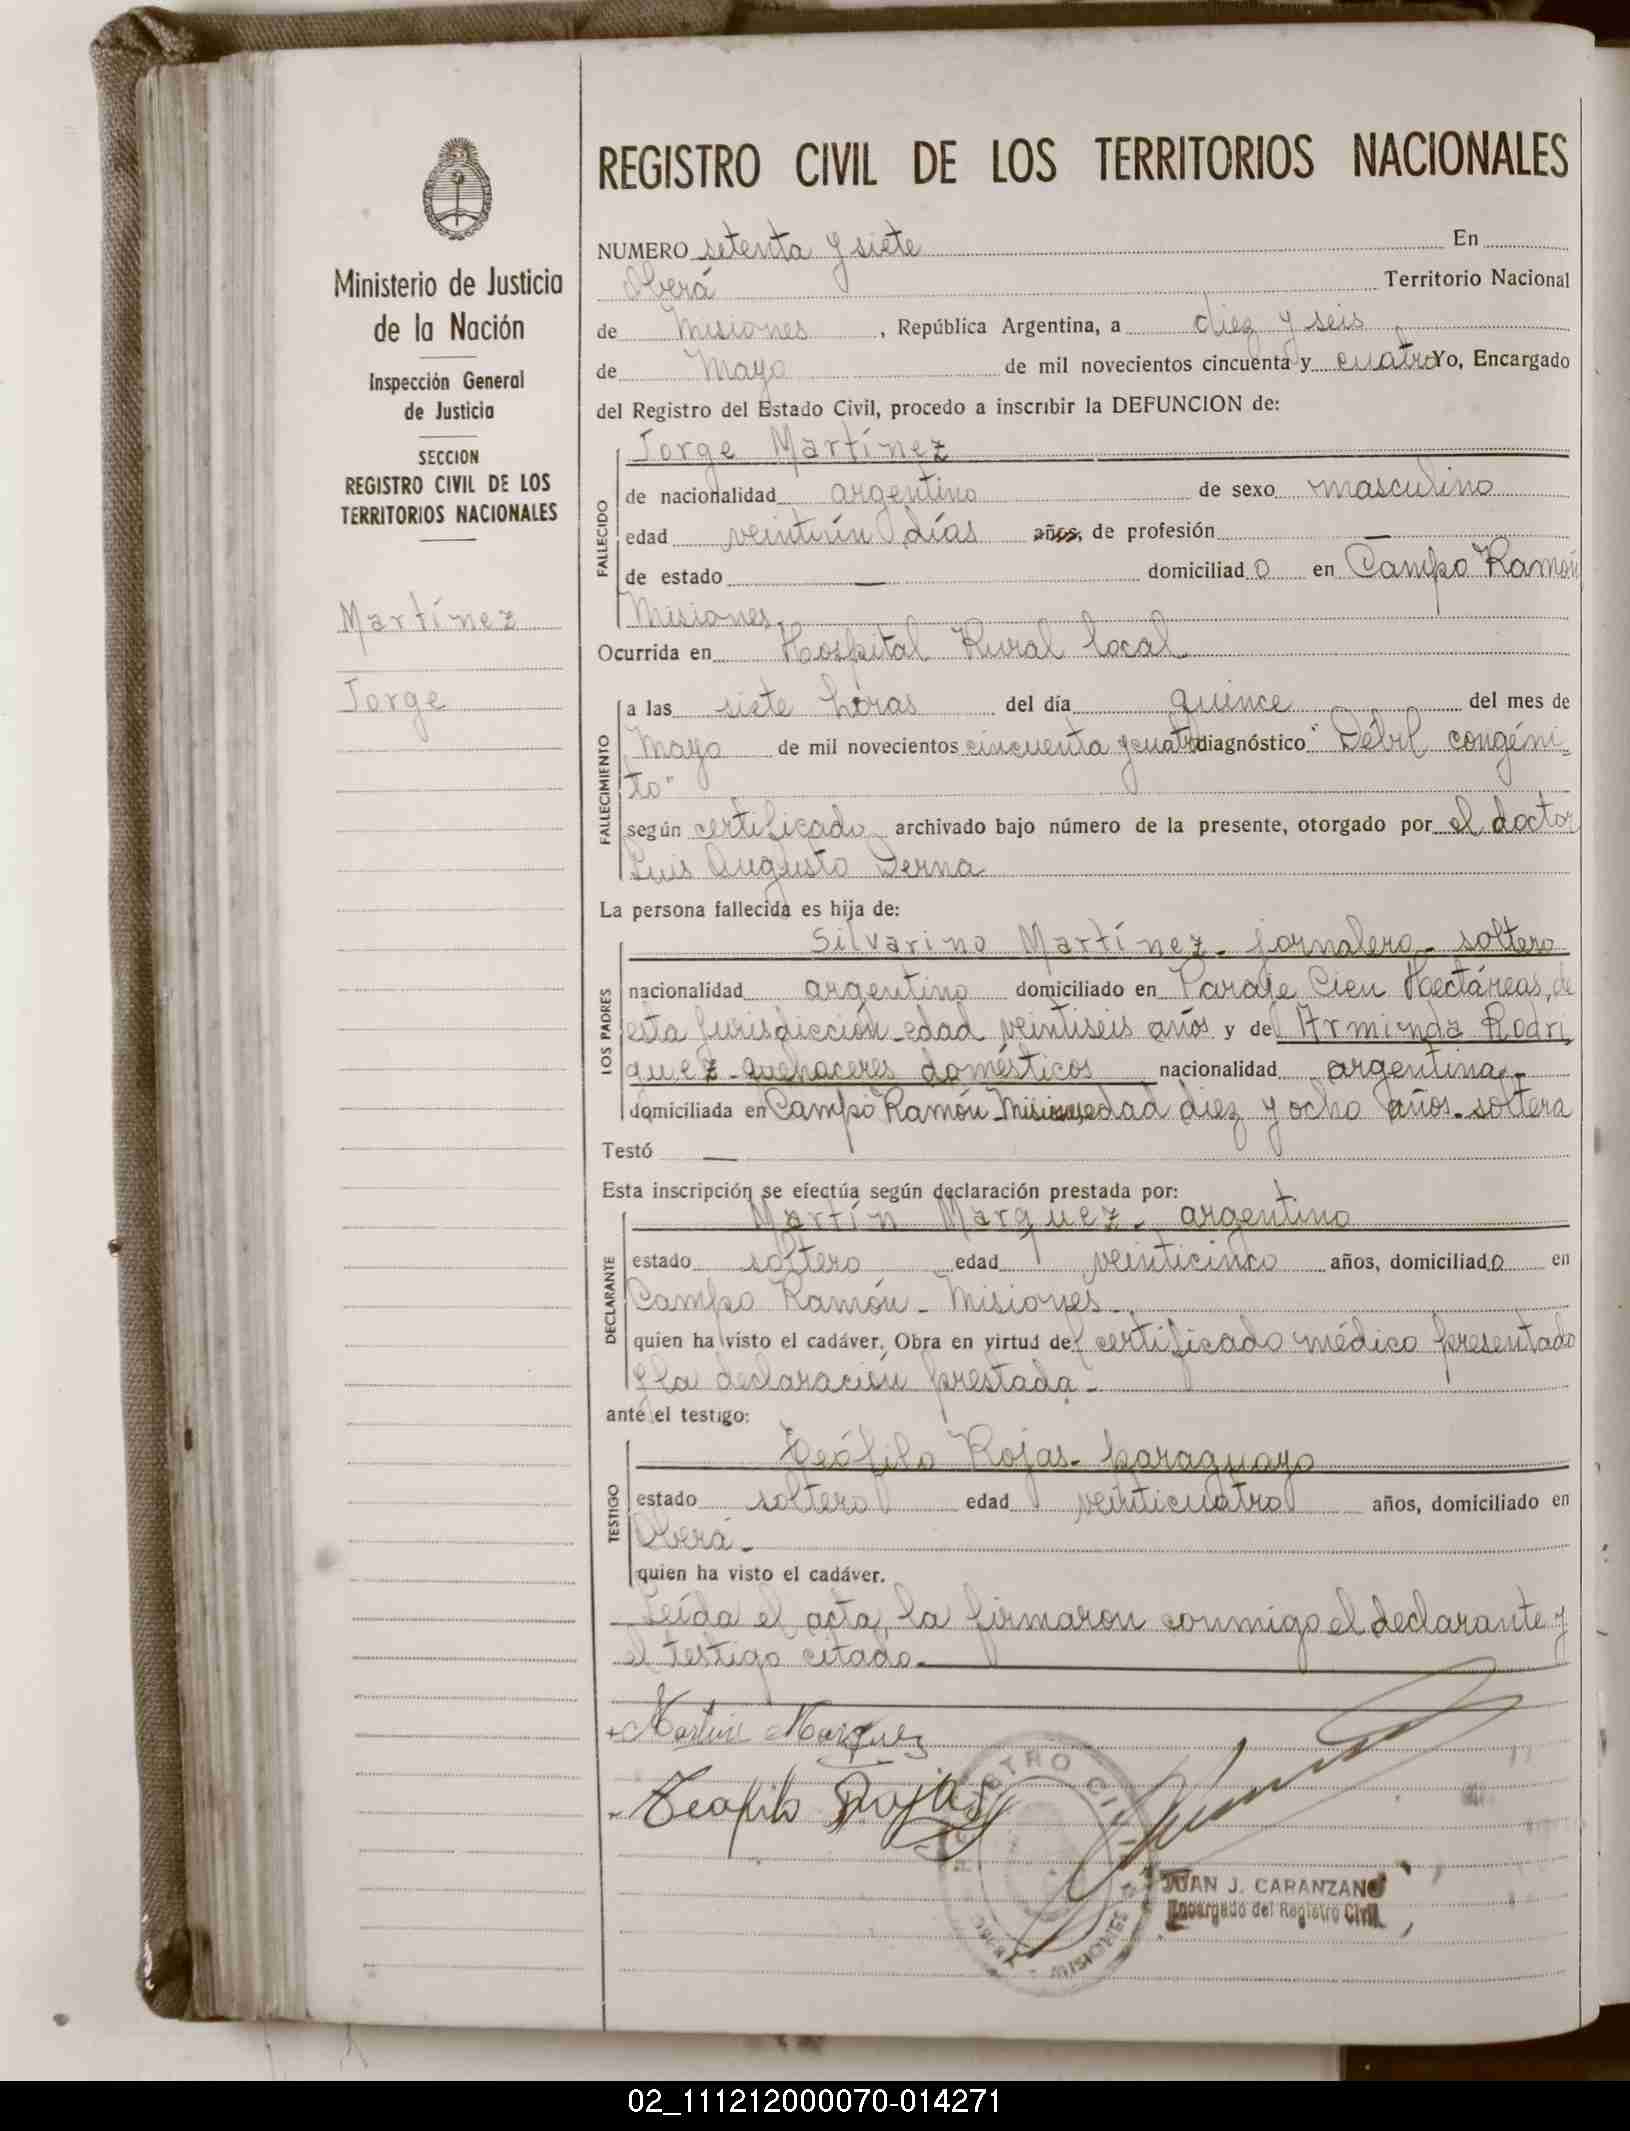 REGISTRO CIVIL DE LOS TERRITORIOS NACIONALES
Ministerio de Justicia
de la Nación
Inspección General
de Justicia
SECCION
REGISTRO CIVIL DE LOS
TERRITORIOS NACIONALES
Martínez
Jorge
NUMERO setenta y siete En
Oberá Territorio Nacional
de Misiones , República Argentina, a diez y seis
de Mayo de mil novecientos cincuenta y cuatro Yo, Encargado
del Registro del Estado Civil, procedo a inscribir la DEFUNCION de:
FALLECIDO
Jorge Martínez
de nacionalidad argentino de sexo masculino
edad veintiún días años, de profesión —
de estado — domiciliad o en Campo Ramón
Misiones.
Ocurrida en Hospital Rural local
FALLECIMIENTO
a las siete horas del día quince del mes de
Mayo de mil novecientos cincuenta y cuatro diagnóstico "Débil congéni-
to"
según certificado archivado bajo número de la presente, otorgado por el doctor
Luis Augusto Derna
La persona fallecida es hija de:
LOS PADRES
Silvarino Martínez - jornalero - soltero
nacionalidad argentino domiciliado en Paraje Cien Hectáreas, de
esta jurisdicción - edad veintiseis años y de Arminda Rodri
guez - quehaceres domésticos nacionalidad argentina -
domiciliada en Campo Ramón - Misiones, edad diez y ocho años - soltera
Testó —
Esta inscripción se efectúa según declaración prestada por:
DECLARANTE
Martín Marquez - argentino
estado soltero edad veinticinco años, domiciliado en
Campo Ramón - Misiones -
quien ha visto el cadáver. Obra en virtud del certificado médico presentado
y la declaración prestada -
ante el testigo:
TESTIGO
Teófilo Rojas - paraguayo
estado soltero edad veinticuatro años, domiciliado en
Oberá -
quien ha visto el cadáver.
Leída el acta, la firmaron conmigo el declarante y
el testigo citado.
+ Martin Marquez
Teofilo Rojas
REGISTRO CIVIL
OBERA - MISIONES
JUAN J. CARANZANO
Encargado del Registro Civil
02_111212000070-014271